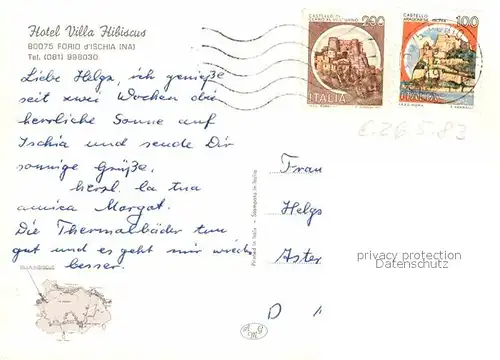 Hotel Villa Hibiscus
80075 FORIO d'ISCHIA (NA)
Tel. (081) 998030
Liebe Helga, ich genieße
seit zwei Wochen die
herrliche Sonne auf
Ischia und sende Dir
sonnige Grüße,
herzl. la tua
amica Margot.
Die Thermalbäder tun
gut und es geht mir wieder
besser.
VILLA HIBISCUS
CASTELLO DI
200
ITALIA
CASTELLO
100
ITALIA
E. 26.5.83
Printed in Italy - Stampato in Italia
Frau
Helga
Aster
privacy protection
Datenschutz
D